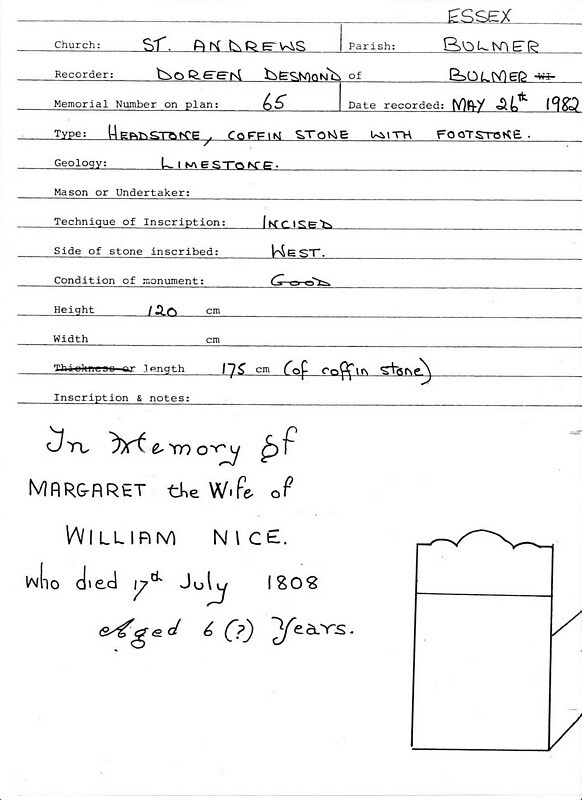 ESSEX
Church: ST. ANDREWS Parish: BULMER
Recorder: DOREEN DESMOND of BULMER
Memorial Number on plan: 65 Date recorded: MAY 26th 1982
Type: HEADSTONE, COFFIN STONE WITH FOOTSTONE.
Geology: LIMESTONE.
Mason or Undertaker:
Technique of Inscription: INCISED
Side of stone inscribed: WEST.
Condition of monument: GOOD
Height 120 cm
Width cm
Thickness or length 175 cm (of coffin stone)
Inscription & notes:
In Memory of
MARGARET the Wife of
WILLIAM NICE.
who died 17th July 1808
Aged 6 (?) Years.